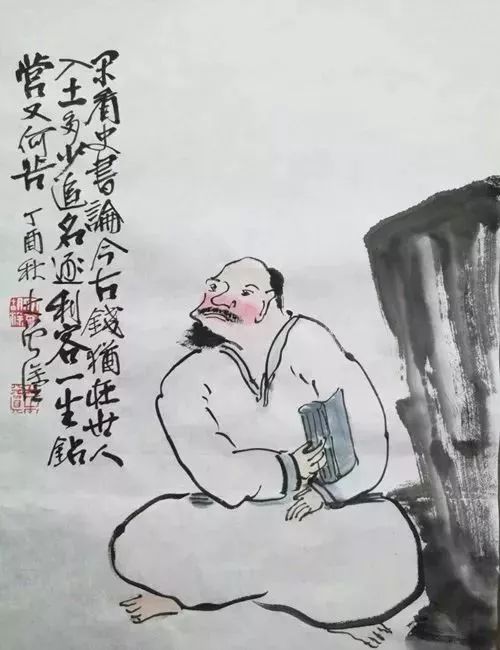 看史書論今古錢猶在世人
入土多少追名逐利客一生鉆
营又何苦 丁酉秋